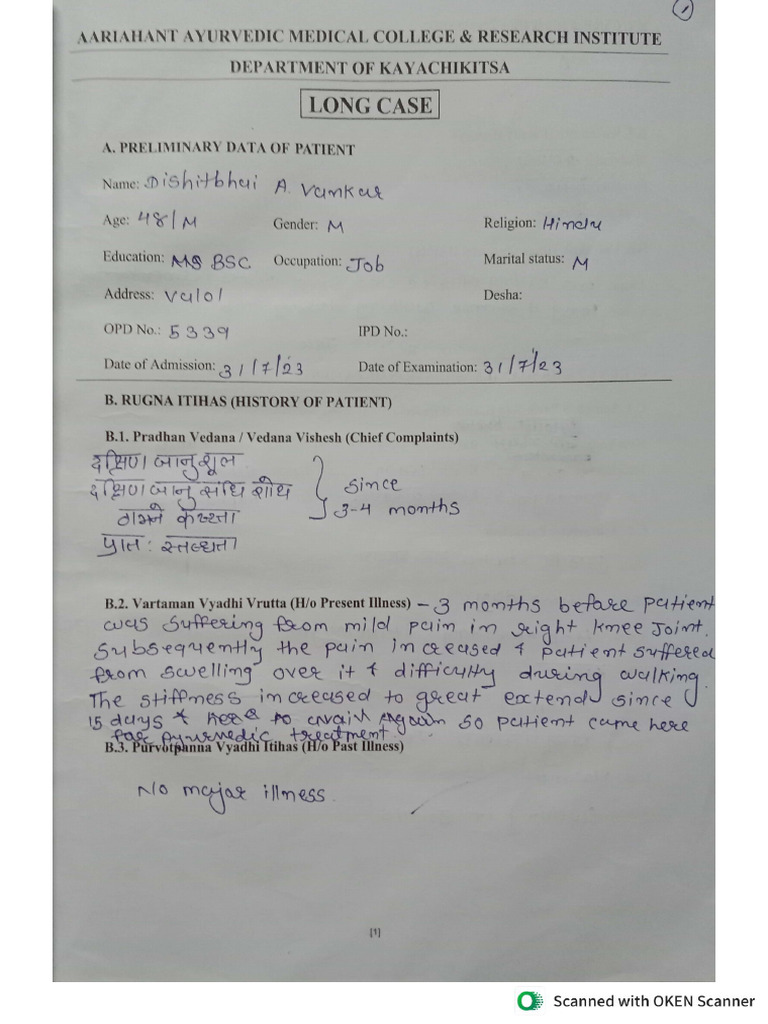 1
AARIAHANT AYURVEDIC MEDICAL COLLEGE & RESEARCH INSTITUTE
DEPARTMENT OF KAYACHIKITSA
LONG CASE
A. PRELIMINARY DATA OF PATIENT
Name: Dishitbhai A. Vankar
Age: 48/M Gender: M Religion: Hindu
Education: BSC Occupation: Job Marital status: M
Address: Valol Desha:
OPD No.: 5339 IPD No.:
Date of Admission: 31/7/23 Date of Examination: 31/7/23
B. RUGNA ITIHAS (HISTORY OF PATIENT)
B.1. Pradhan Vedana / Vedana Vishesh (Chief Complaints)
दक्षिण जानुशूल
दक्षिण जानु संधि शोथ } since
गमने कष्टता 3-4 months
प्रातः स्तब्धता
B.2. Vartaman Vyadhi Vrutta (H/o Present Illness) – 3 months before patient
was suffering from mild pain in right knee Joint.
Subsequently the pain increased & patient suffered
from swelling over it & difficulty during walking.
The stiffness increased to great extend since
15 days so patient came here
for Ayurvedic treatment.
B.3. Purvotpanna Vyadhi Itihas (H/o Past Illness)
No major illness.
[1]
Scanned with OKEN Scanner